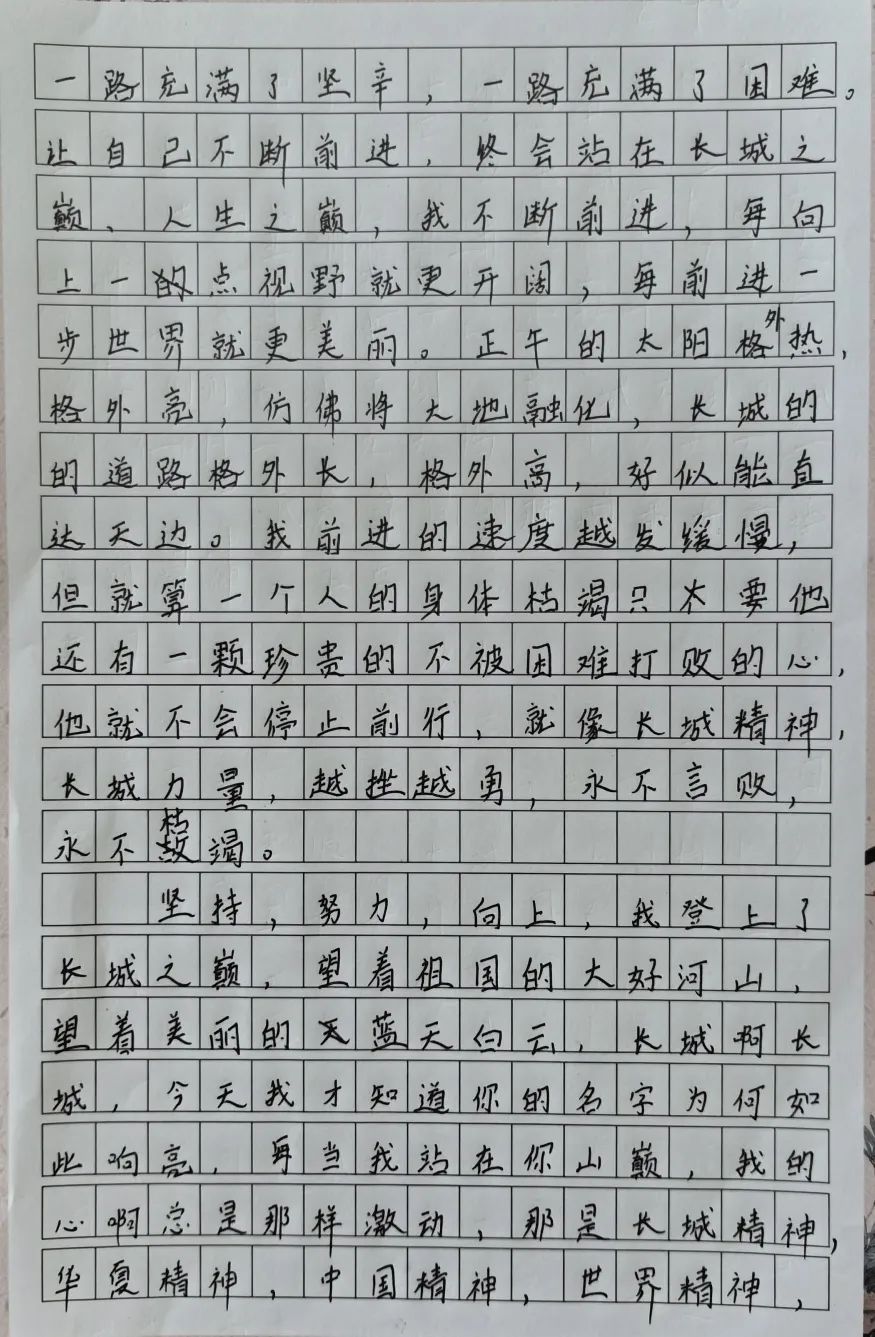 一路充满了坚辛，一路充满了困难。
让自己不断前进，终会站在长城之
巅、人生之巅，我不断前进，每向
上一的点视野就更开阔，每前进一
步世界就更美丽。正午的太阳格外热，
格外亮，仿佛将大地融化，长城的
的道路格外长，格外高，好似能直
达天边。我前进的速度越发缓慢，
但就算一个人的身体枯竭只不要他
还有一颗珍贵的不被困难打败的心，
他就不会停止前行，就像长城精神，
长城力量，越挫越勇，永不言败，
永不枯竭。
坚持，努力，向上，我登上了
长城之巅，望着祖国的大好河山，
望着美丽的天蓝天白云，长城啊长
城，今天我才知道你的名字为何如
此响亮，每当我站在你山巅，我的
心啊总是那样激动，那是长城精神，
华夏精神，中国精神，世界精神，